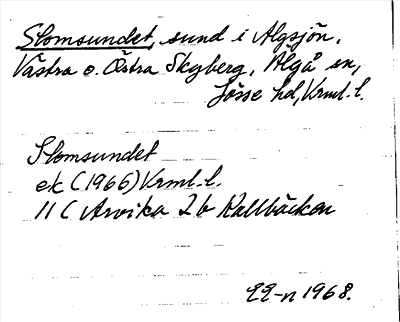 Slomsundet, sund i Algsjön,
Västra o. Östra Skyberg, Älgå sn,
Jösse hd, Vrml. l.
Slomsundet
ek (1966) Vrml. l.
11 C Arvika 2b Kallbäcken
EE-n 1968.